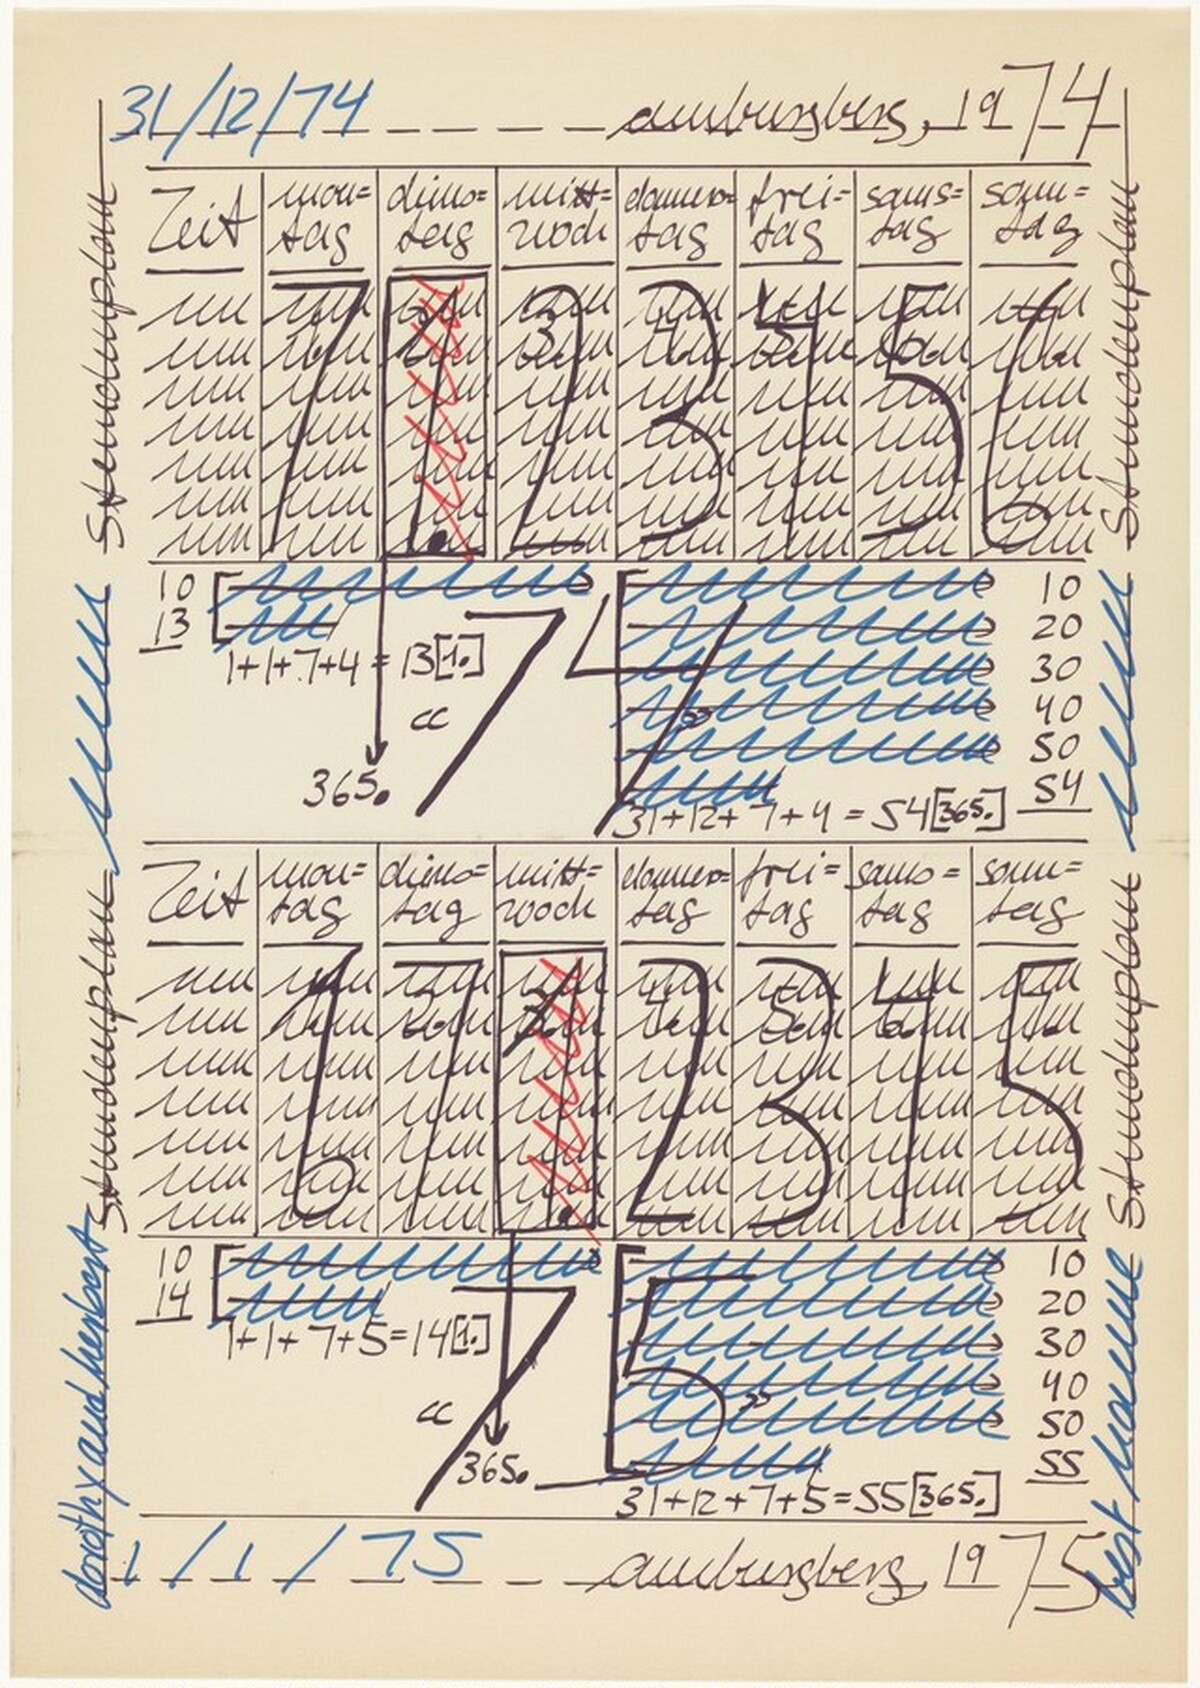 31/12/74 amburgberg, 1974
Stundenplan
Stundenplan
Zeit mon= diens= mitt= donners= frei= sams= sonn=
tag tag woch tag tag tag tag
7 1. 2 3 4 5 6
1 2 3 4 5 6 7
10
13
1+1+7+4=13[1.]
365.
"74"
10
20
30
40
50
54
31+12+7+4=54[365.]
Stundenplan
Stundenplan
Zeit mon= diens= mitt= donners= frei= sams= sonn=
tag tag woch tag tag tag tag
6 7 1. 2 3 4 5
1 2 3 4 5 6 7
10
14
1+1+7+5=14[1.]
365.
"75"
10
20
30
40
50
55
31+12+7+5=55[365.]
dorothy and herbert
best
1/1/75 amburgberg, 1975